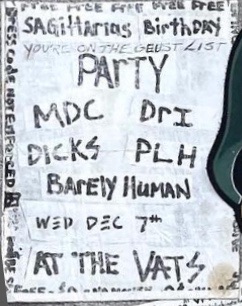 FREE FREE FREE FREE FREE
SAGITTARIUS BIRTHDAY
YOU'RE ON THE GEUST LIST
PARTY
MDC DRI
DICKS PLH
BARELY HUMAN
WED DEC 7th
AT THE VATS
DRESS CODE NOT ENFORCED